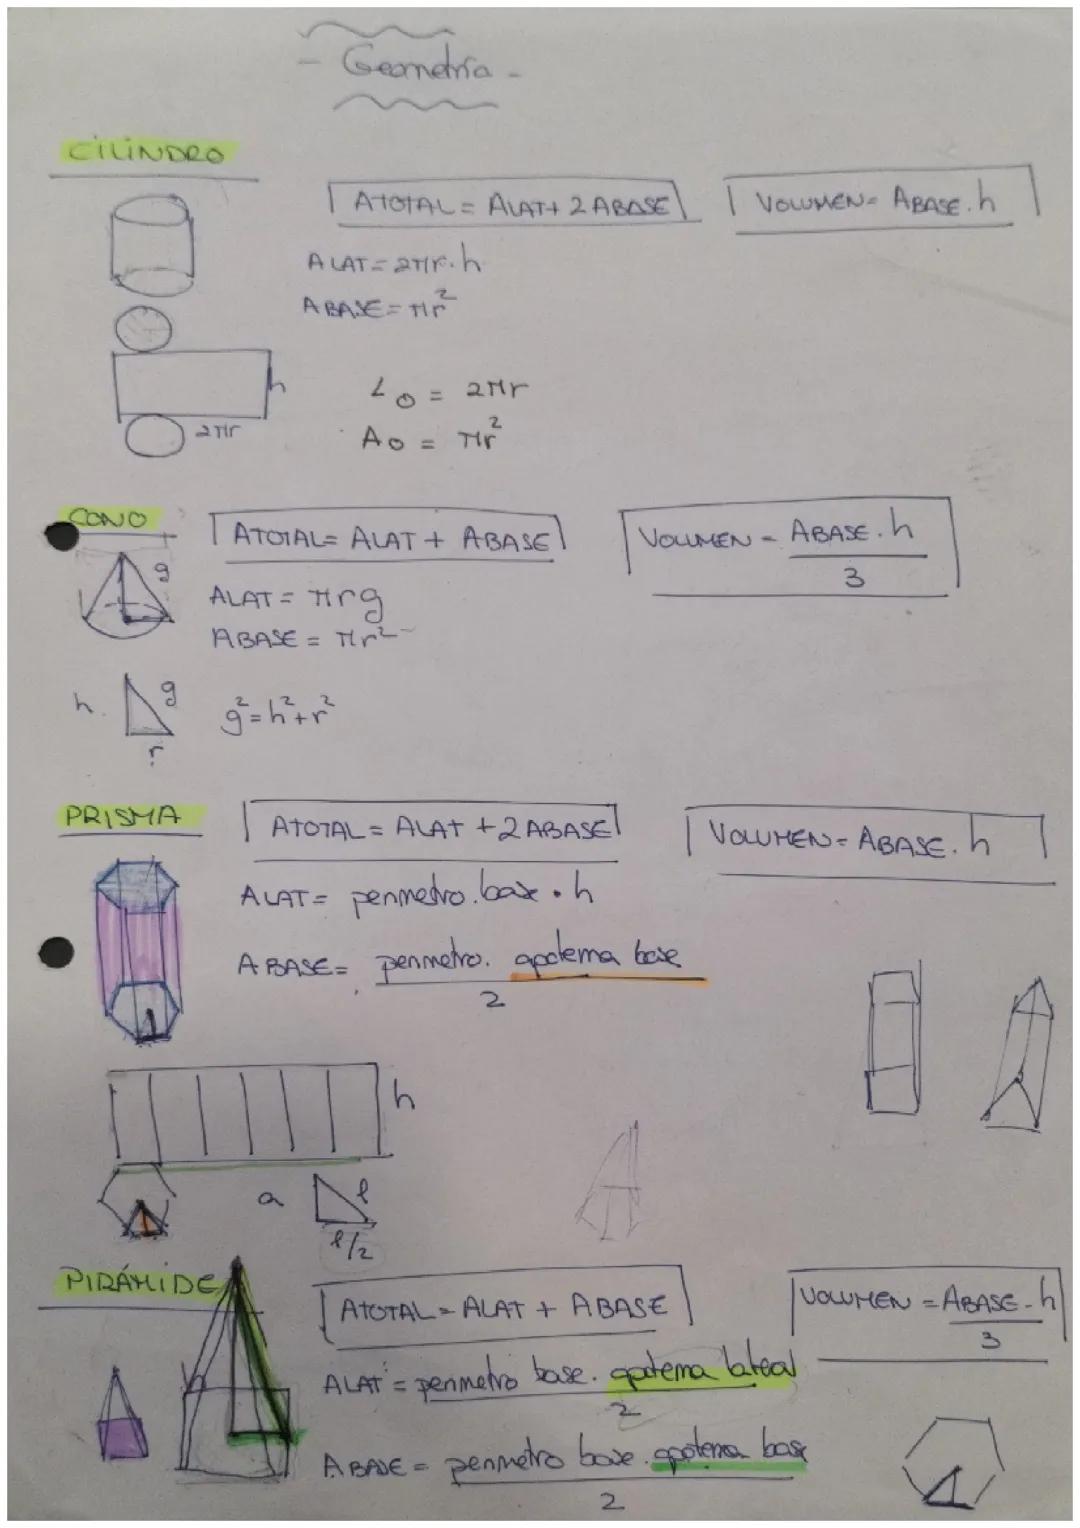 - Geometría -
CILINDRO
ATOTAL = ALAT + 2 ABASE
VOLUMEN = ABASE . h
ALAT = 2πr . h
ABASE = πr²
h
2πr
L○ = 2πr
A○ = πr²
CONO
ATOTAL = ALAT + ABASE
VOLUMEN = ABASE . h / 3
g
ALAT = πrg
ABASE = πr²
h g
r
g² = h² + r²
PRISMA
ATOTAL = ALAT + 2 ABASE
VOLUMEN = ABASE . h
ALAT = perimetro . base . h
ABASE = perimetro . apotema base / 2
h
a l
l/2
PIRÁMIDE
ATOTAL = ALAT + ABASE
VOLUMEN = ABASE . h / 3
ALAT = perimetro base . apotema lateral / 2
h
ABASE = perimetro base . apotema base / 2